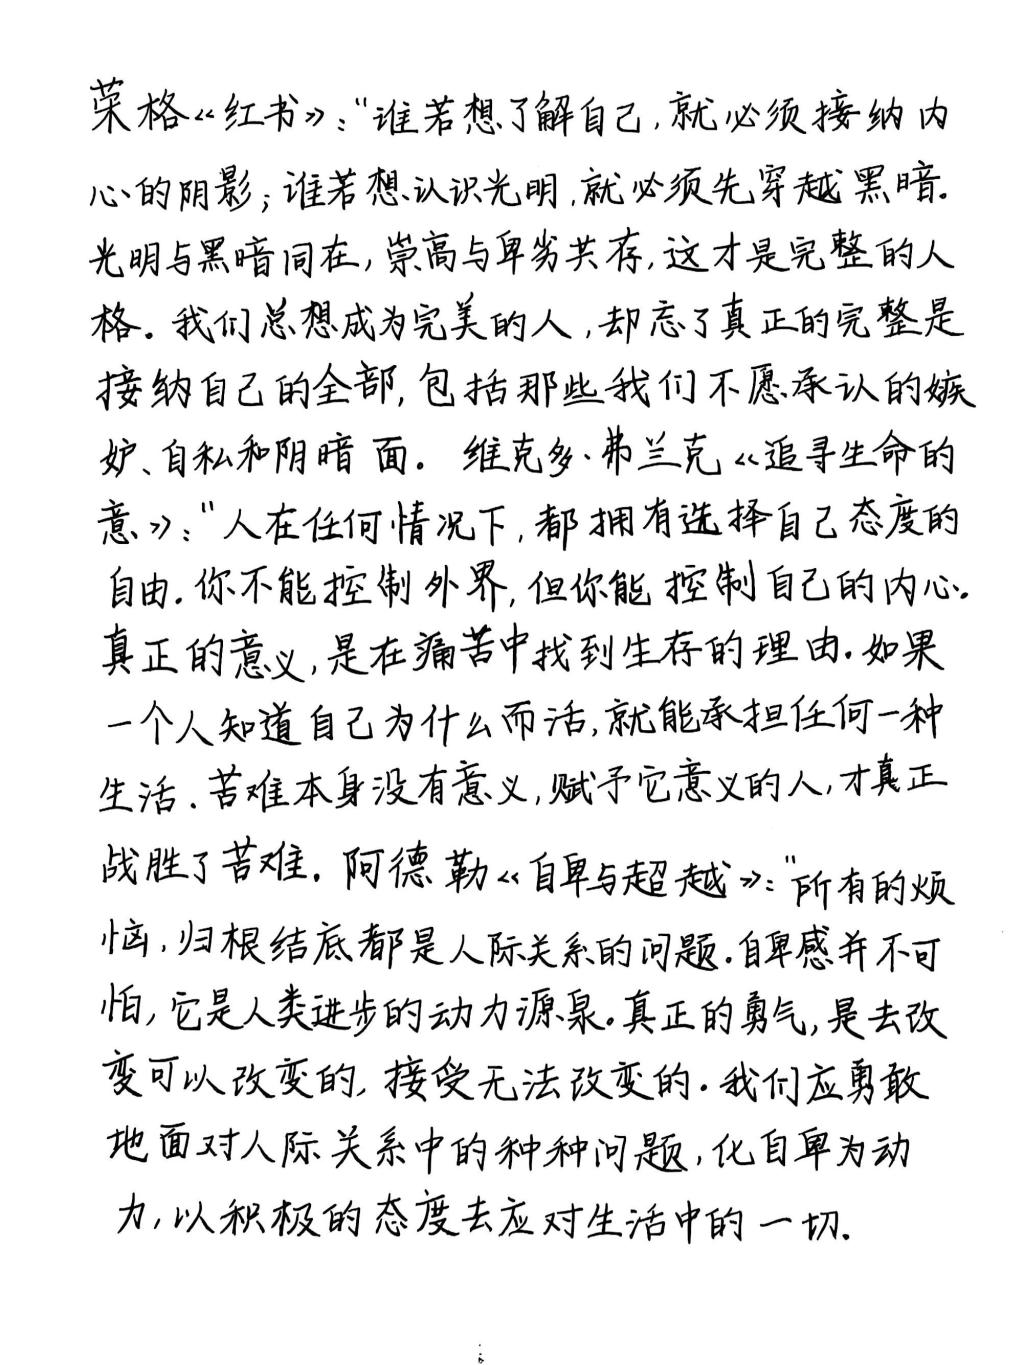 荣格《红书》："谁若想了解自己，就必须接纳内
心的阴影；谁若想认识光明，就必须先穿越黑暗.
光明与黑暗同在，崇高与卑劣共存，这才是完整的人
格。我们总想成为完美的人，却忘了真正的完整是
接纳自己的全部，包括那些我们不愿承认的嫉
妒、自私和阴暗面。维克多·弗兰克《追寻生命的
意》："人在任何情况下，都拥有选择自己态度的
自由.你不能控制外界，但你能控制自己的内心.
真正的意义，是在痛苦中找到生存的理由.如果
一个人知道自己为什么而活，就能承担任何一种
生活.苦难本身没有意义，赋予它意义的人，才真正
战胜了苦难.阿德勒《自卑与超越》："所有的烦
恼，归根结底都是人际关系的问题.自卑感并不可
怕，它是人类进步的动力源泉。真正的勇气，是去改
变可以改变的，接受无法改变的.我们应勇敢
地面对人际关系中的种种问题，化自卑为动
力，以积极的态度去应对生活中的一切.